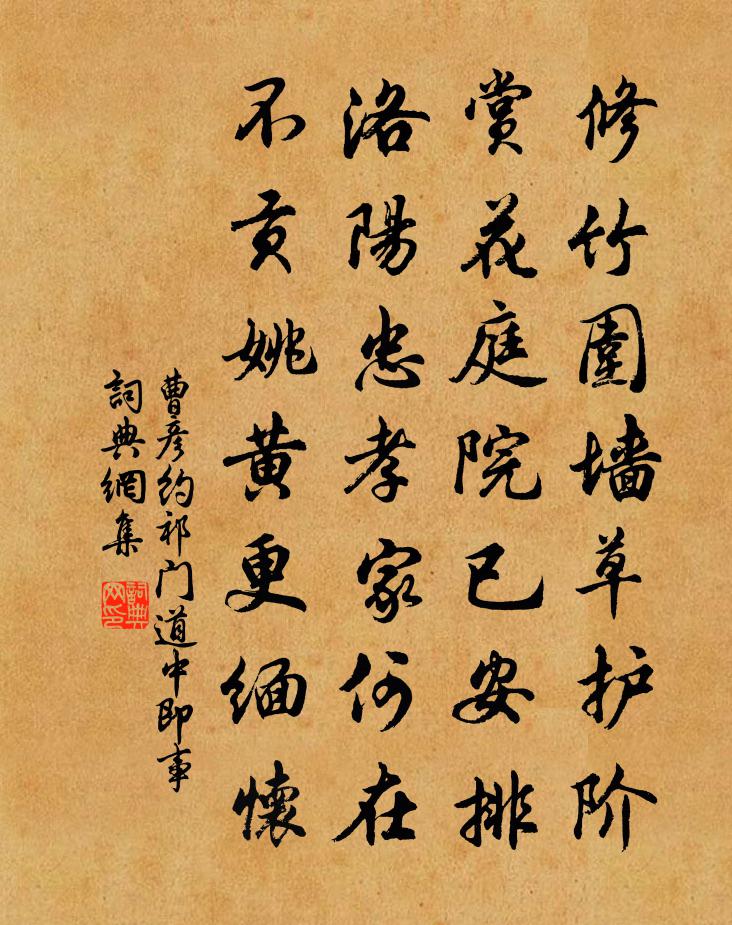 修竹圍墙草护阶
赏花庭院已安排
洛陽忠孝家何在
不贡姚黄更缅懷
曹彦约祁门道中即事
詞典網集
詞典网印